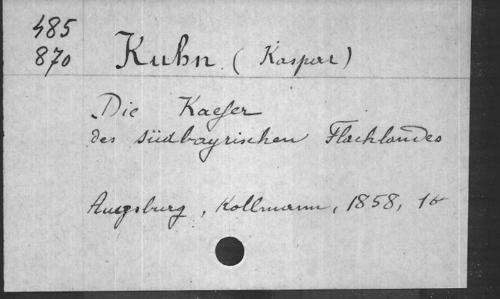 485
870 Kuhn (Kaspar)
Die Kaefer
des südbayrischen Flachlandes
Augsburg, Kollmann, 1858,